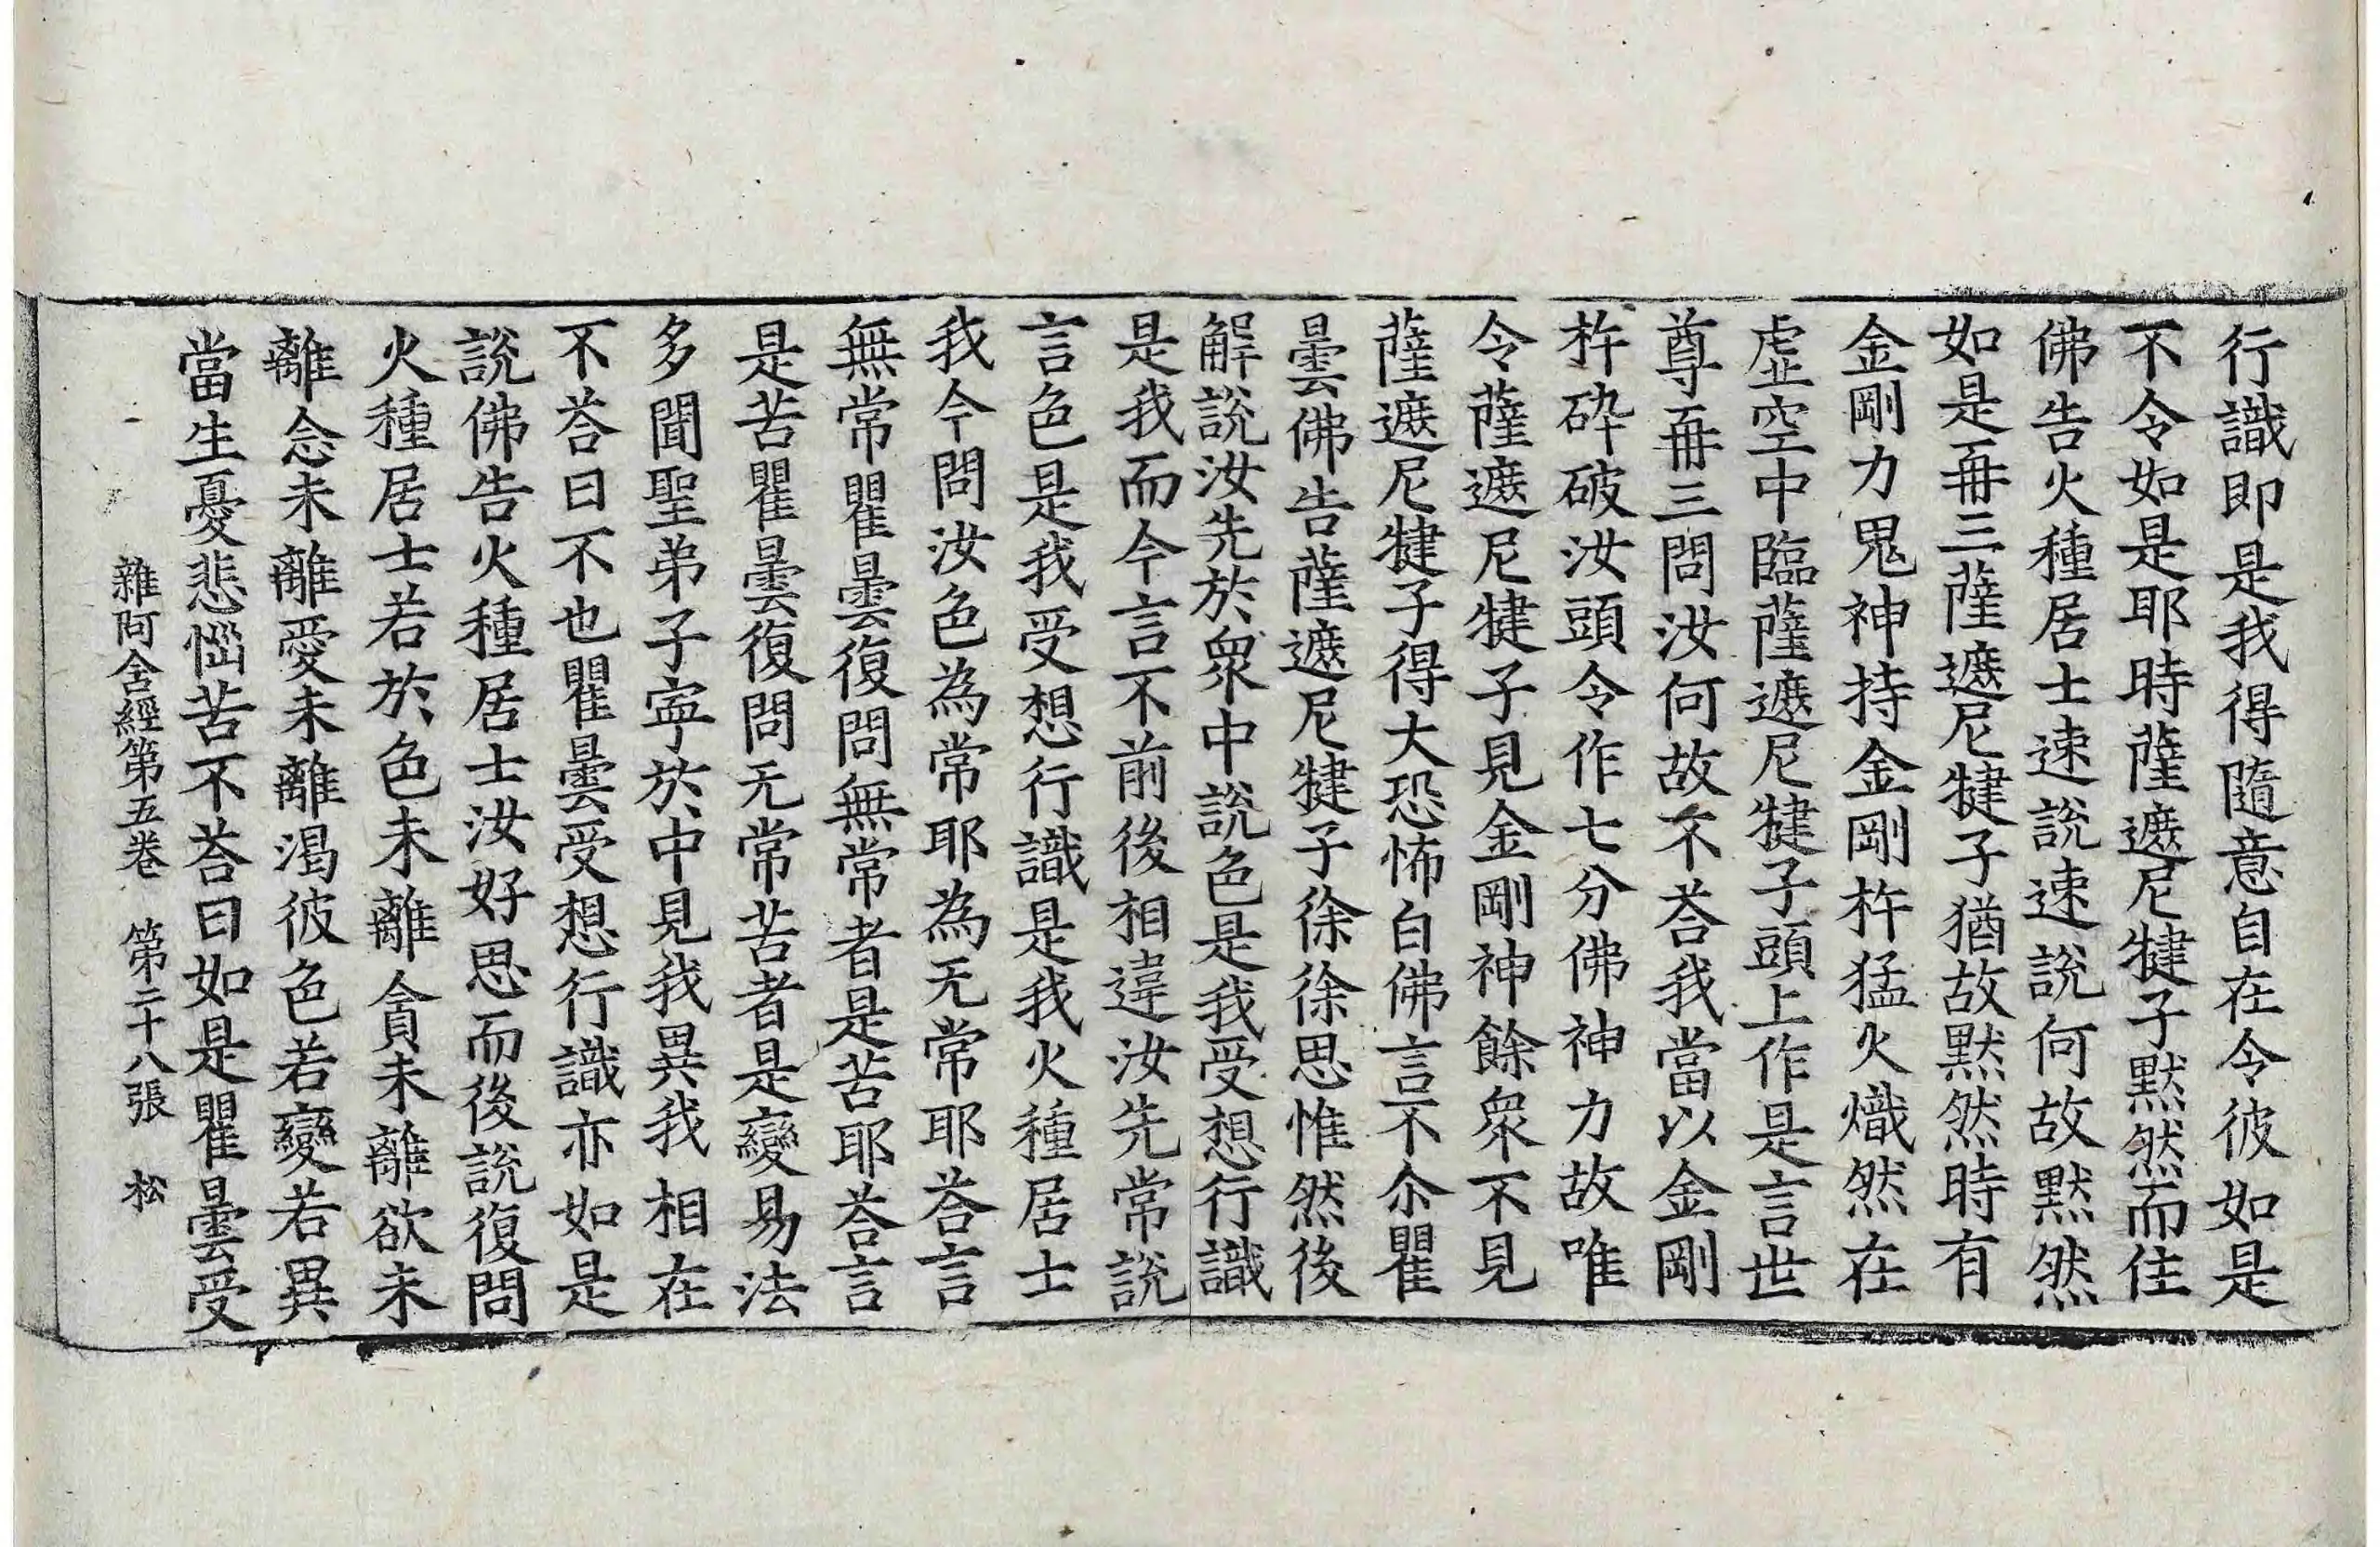 行識即是我得隨意自在令彼如是
不令如是耶時薩遮尼犍子默然而住
佛告火種居士速說速說何故默然
如是再三薩遮尼犍子猶故默然時有
金剛力鬼神持金剛杵猛火熾然在
虛空中臨薩遮尼犍子頭上作是言世
尊再三問汝何故不荅我當以金剛
杵碎破汝頭令作七分佛神力故唯
令薩遮尼犍子見金剛神餘衆不見
薩遮尼犍子得大恐怖白佛言不尒瞿
曇佛告薩遮尼犍子徐徐思惟然後
解說汝先於衆中說色是我受想行識
是我而今言不前後相違汝先常說
言色是我受想行識是我火種居士
我今問汝色為常耶為无常耶荅言
無常瞿曇復問無常者是苦耶荅言
是苦瞿曇復問无常苦者是變易法
多聞聖弟子寧於中見我異我相在
不荅曰不也瞿曇受想行識亦如是
說佛告火種居士汝好思而後說復問
火種居士若於色未離貪未離欲未
離念未離愛未離渴彼色若變若異
當生憂悲惱苦不荅曰如是瞿曇受
雜阿含經第五卷 第二十八張 松